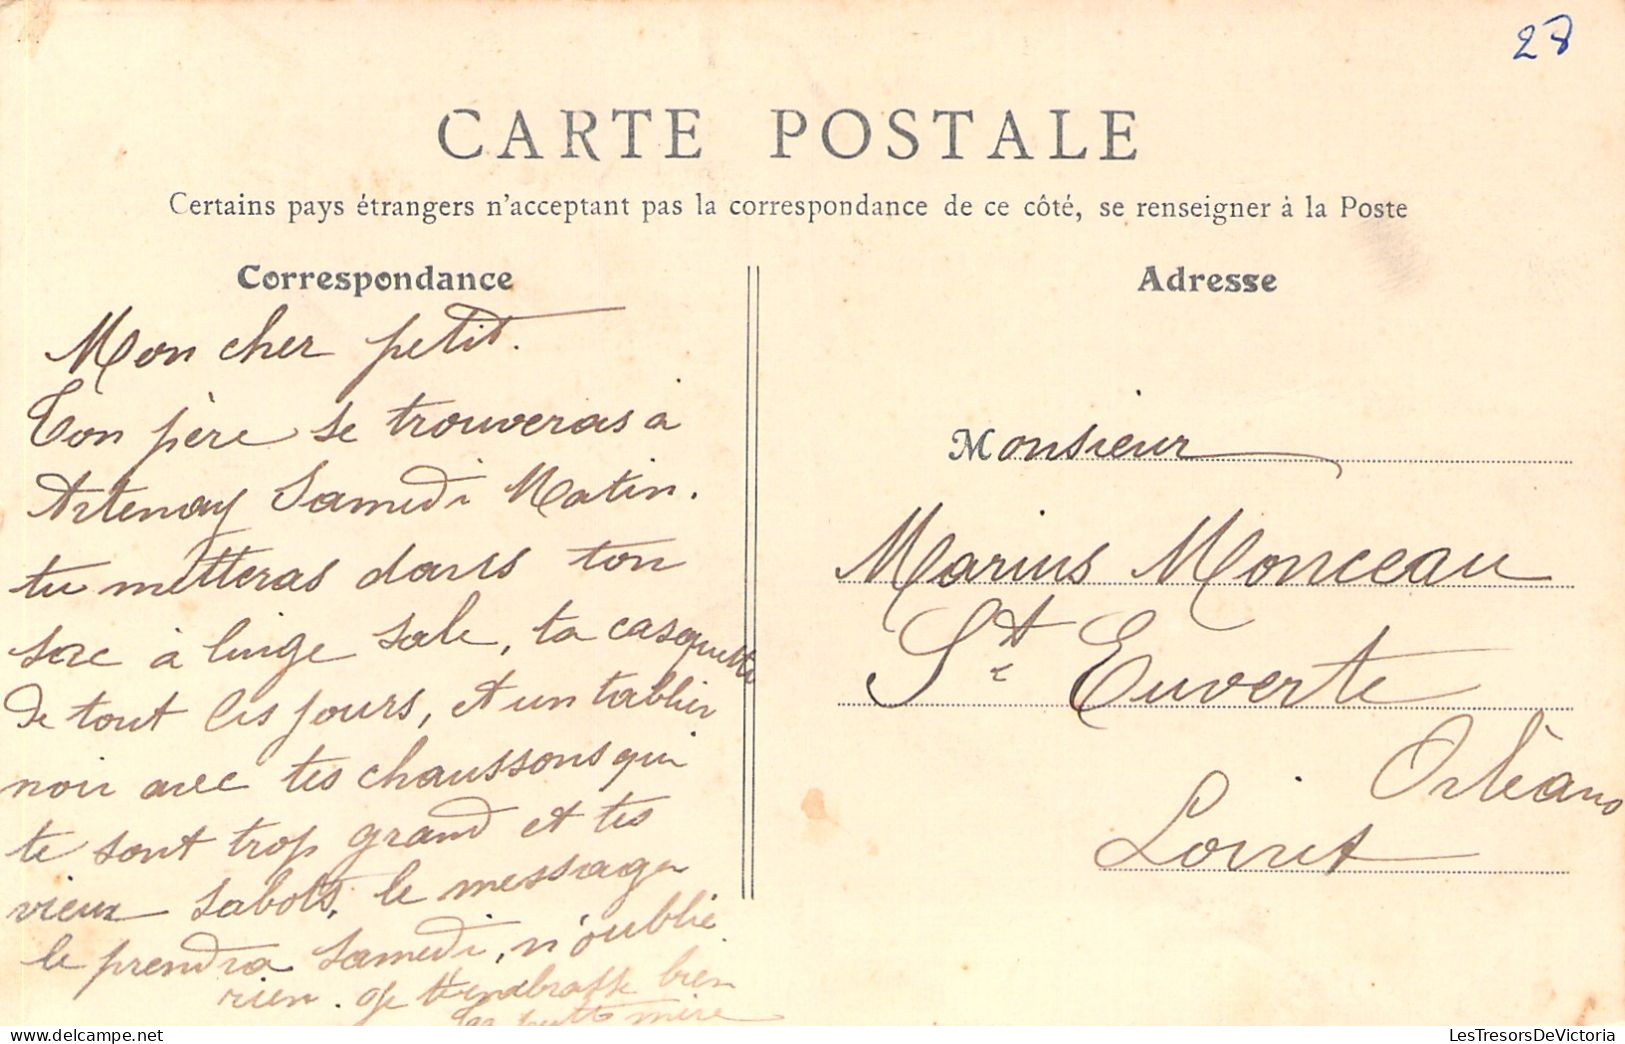 28
CARTE POSTALE
Certains pays étrangers n'acceptant pas la correspondance de ce côté, se renseigner à la Poste
Correspondance
Mon cher petit.
Ton père se trouveras à
Artenay Samedi Matin.
tu metteras dans ton
sac à linge sale, ta casquette
de tout les jours, et un tablier
noir avec tes chaussons qui
te sont trop grand et tes
vieux sabots, le messager
le prendra samedi, n'oublie
rien. Je t'embrasse bien
Ta petite mère
Adresse
Monsieur
Marius Monceau
St Euverte
Orléans
Loiret
LesTresorsDeVictoria